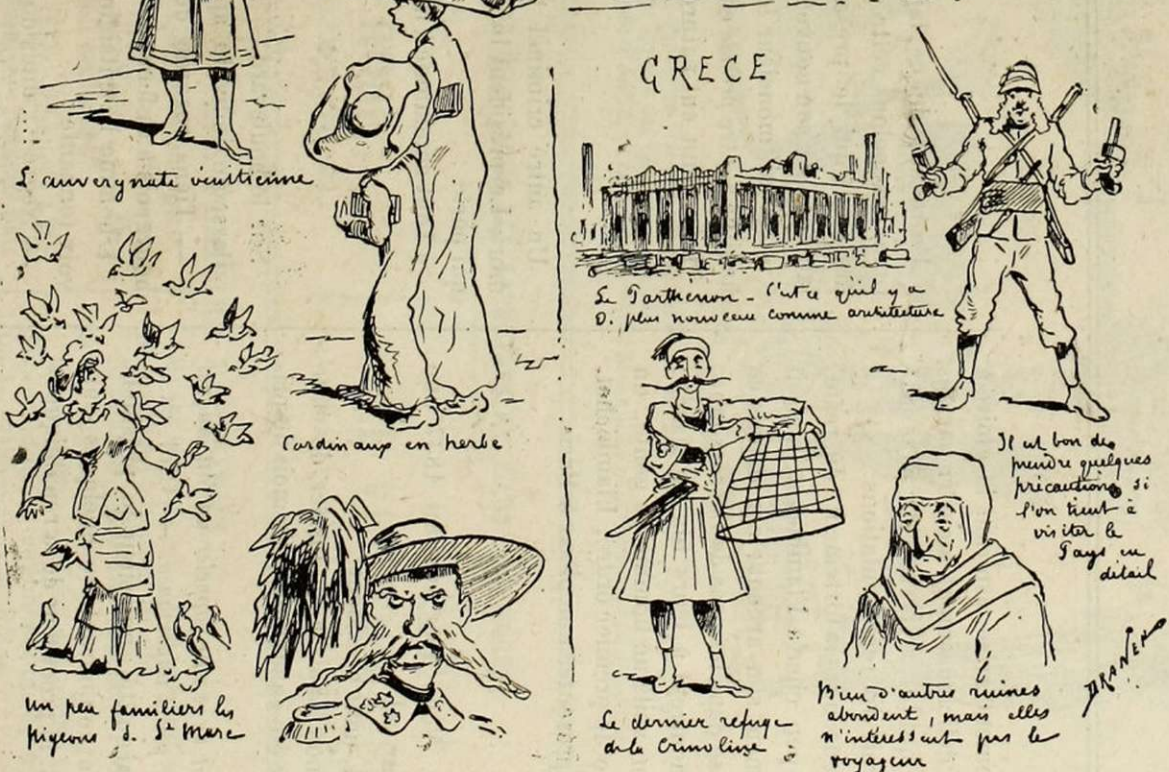 L'auvergnate vénitienne
Cardinaux en herbe
Un peu familiers les
pigeons d. St Marc
GRECE
Le Parthénon - C'est ce qu'il y a
D. plus nouveau comme architecture
Il est bon de
prendre quelques
précautions si
l'on tient à
visiter le
Pays en
détail
Le dernier refuge
de la Crinoline
Bien d'autres ruines
abondent, mais elles
n'intéressent pas le
voyageur
DRANER